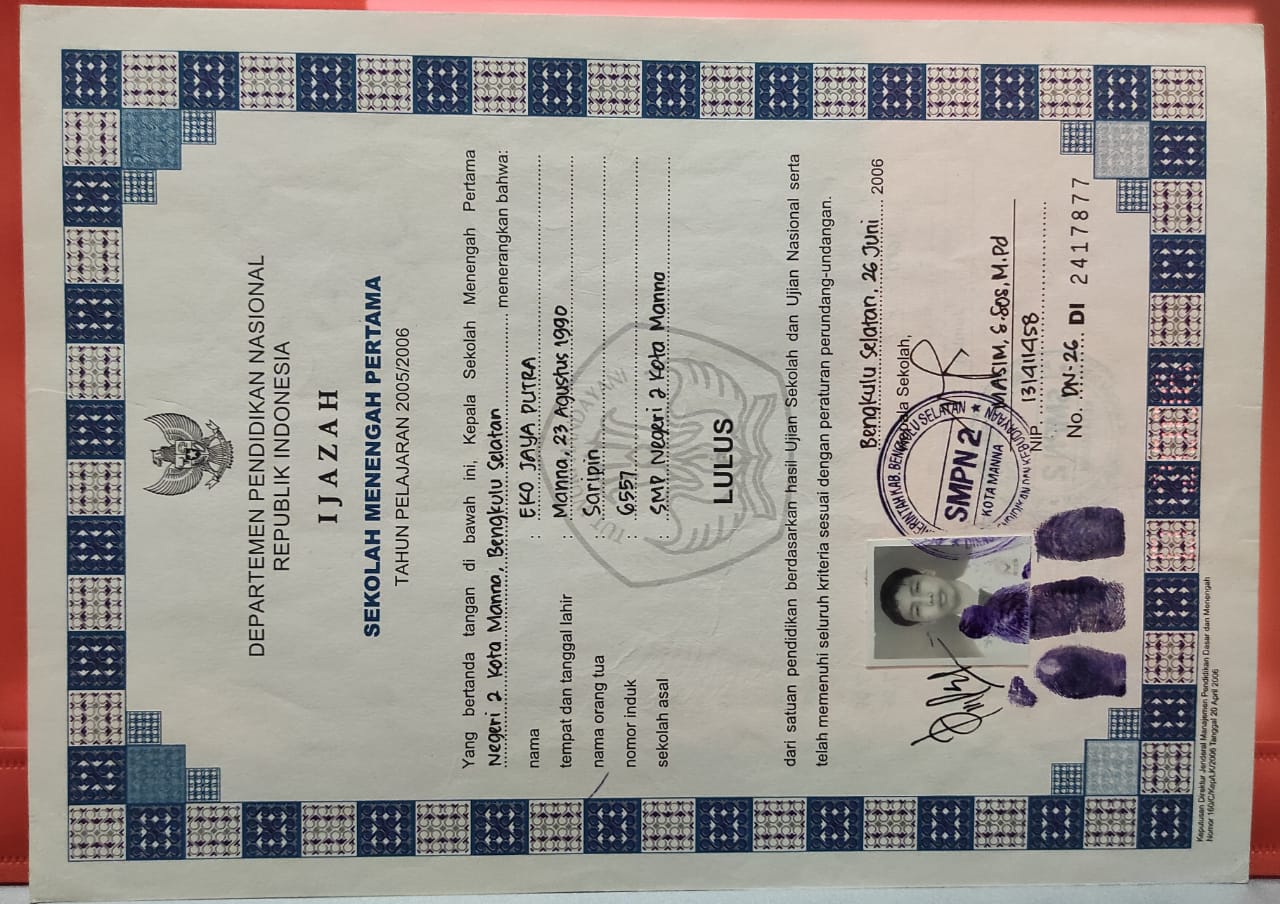 DEPARTEMEN PENDIDIKAN NASIONAL
REPUBLIK INDONESIA
IJAZAH
SEKOLAH MENENGAH PERTAMA
TAHUN PELAJARAN 2005/2006
Yang bertanda tangan di bawah ini, Kepala Sekolah Menengah Pertama
Negeri 2 Kota Manna, Bengkulu Selatan menerangkan bahwa:
nama : EKO JAYA PUTRA
tempat dan tanggal lahir : Manna, 23 Agustus 1990
nama orang tua : Saripin
nomor induk : 6557
sekolah asal : SMP Negeri 2 Kota Manna
LULUS
dari satuan pendidikan berdasarkan hasil Ujian Sekolah dan Ujian Nasional serta
telah memenuhi seluruh kriteria sesuai dengan peraturan perundang-undangan.
Bengkulu Selatan, 26 Juni 2006
Sekolah,
SMPN 2
KOTA MANNA
BENGKULU SELATAN
S.Sos, M.Pd
NIP. 131411458
No. DN-26 DI 2417877
Keputusan Direktur Jenderal Manajemen Pendidikan Dasar dan Menengah
Tanggal 20 April 2006